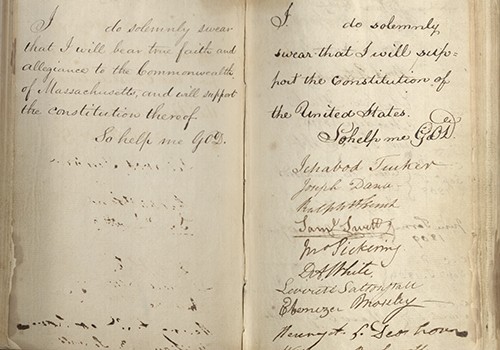 I do solemnly swear
that I will bear true faith and
allegiance to the Commonwealth
of Massachusetts, and will support
the constitution thereof.
So help me GOD.
I do solemnly
swear that I will sup=
port the Constitution of
the United States.
So help me GOD.
Ichabod Tucker
Joseph Dana
Ralph H. French
Saml
Jno Pickering
D. A. White
Leverett Saltonstall
Ebenezer Moseley